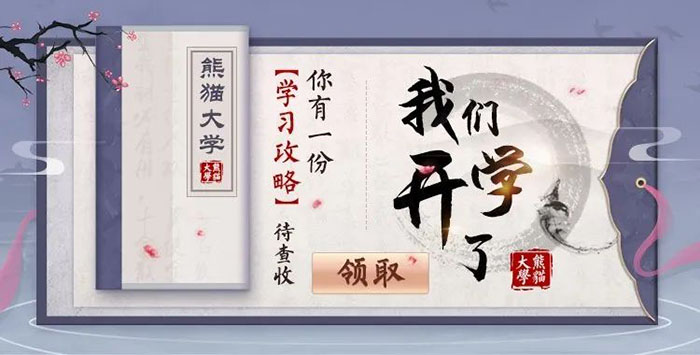 熊猫大学
熊貓
大學
你有一份
【学习攻略】
待查收
领取
我们
开学了
熊貓
大學